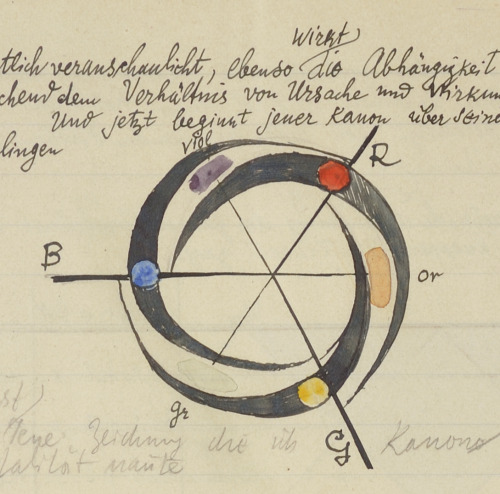 wirkt
tlich veranschaulicht, ebenso die Abhängigkeit
chend dem Verhältnis von Ursache und Wirkun
Und jetzt beginnt jener Kanon über seine
lingen
viol
R
B
or
gr
G
st)
Jene Zeichnung die ich Kanons
talität nannte